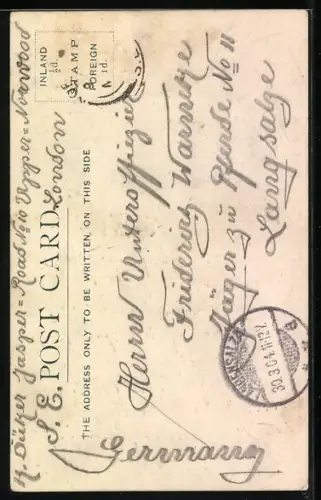 K. Düker Jasper=Road No 10 Upper=Norwood
S. E. London
POST CARD.
THE ADDRESS ONLY TO BE WRITTEN ON THIS SIDE
INLAND
½d.
STAMP
FOREIGN
1d.
Herrn Unteroffizier
Friedering Warnitze
Jäger zu Pferde No 11
Langsalze
Germany
30.3.04